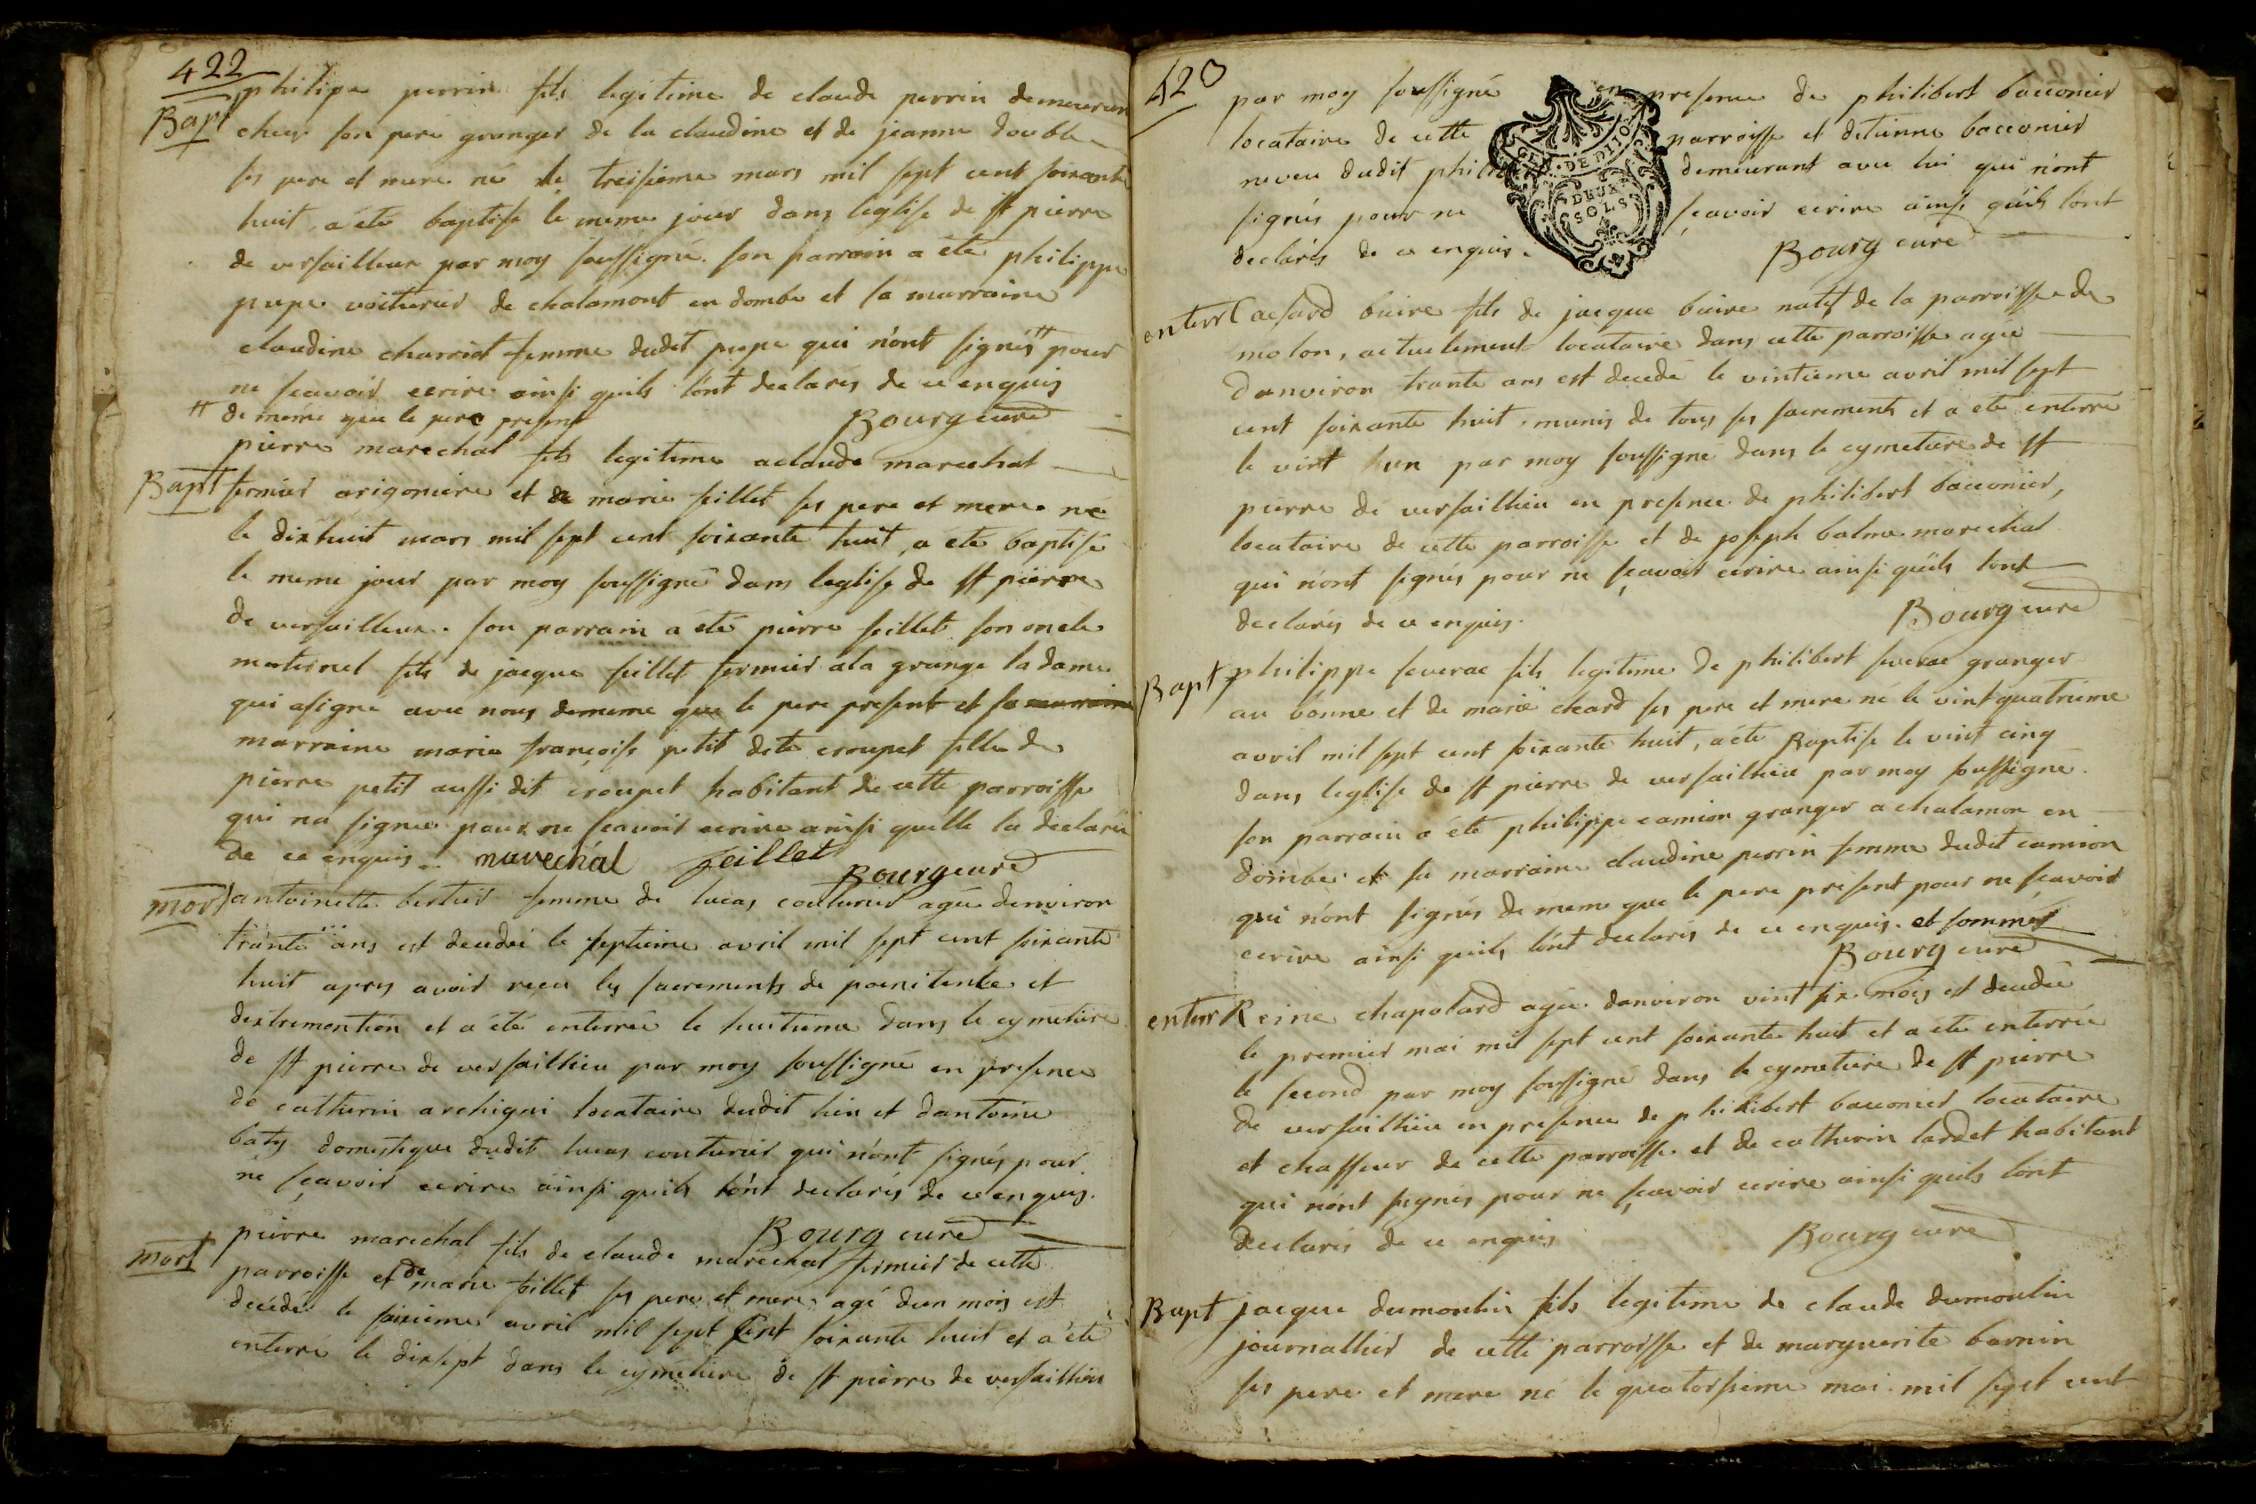 422
Bapt philipe perrin fils legitime de claude perrin demeurant
chez son pere granger de la claudine et de jeanne double
ses pere et mere né le treisieme mars mil sept cent soixante
huit, a été baptise le meme jour dans leglise de st pierre
de versailleux par moy soussigné. son parrain a été philippe
pepe voiturier de chalamont en dombe et sa marraine
claudine charriot femme dudit pepe qui n'ont signés # pour
ne scavoir ecrire ainsi quils l'ont declarés de ce enquis
# de meme que le pere present Bourg curé
pierre marechal fils legitime a claude marechal
Bapt fermier arigoniere et de marie feillet ses pere et mere né
le dixhuit mars mil sept cent soixante huit, a eté baptisé
le meme jour par moy soussigné dans leglise de st pierre
de versailleux. son parrain a été pierre feillet son oncle
maternel fils de jacque feillet fermier ala grange la dame
qui asigné avec nous dememe que le pere present et sa marraine
marraine marie françoise petit dite croupet fille de
pierre petit aussi dit croupet habitant de cette parroisse
qui na signée pour ne scavoir ecrire ainsi quelle la declarée
de ce enquis. marechal feillet
Bourg curé
mort antoinette bertier femme de lucas couturier agée denviron
trante ans est decedée le septieme avril mil sept cent soixante
huit apres avoir reçu les sacrements de poenitence et
dextremontion et a été enterrée le huitieme dans le cymetiere
de st pierre de versailhieu par moy soussigné en presence
de catherin archigni locataire dudit lieu et dantoine
baty domestique dudit lucas couturier qui n'ont signés pour
ne sçavoir ecrire ainsi quils l'ont declarés de ce enquis.
Bourg curé
mort pierre marechal fils de claude marechal fermier de cette
parroisse et de marie feillet ses pere et mere, agé dun mois est
decédé le seizieme avril mil sept cent soixante huit et a été
enterré le dixsept dans le cymetiere de st pierre de versailhieu
423
par moy soussigné en presence de philibert bacconier
locataire de cette parroisse et detienne bacconier
neveu dudit philibert demeurant avec lui qui n'ont
signés pour ne sçavoir ecrire ainsi quils l'ont
declarés de ce enquis.
GEN. DE DIJON
DEUX SOLS
Bourg curé
enterr Caesard buire fils de jacque buire natif de la parroisse de
molon, actuelement locataire dans cette parroisse agée
danviron trante ans est decedé le vintieme avril mil sept
cent soixante huit, munis de tous ses sacrements et a eté enterré
le vint hun par moy soussigné dans le cymetiere de st
pierre de versailhieu en presence de philibert bacconier,
locataire de cette parroisse et de joseph balme marechal
qui n'ont signés pour ne sçavoir ecrire ainsi quils l'ont
declarés de ce enquis.
Bourg curé
Bapt philippe severac fils legitime de philibert severac granger
au bonne et de marie chard ses pere et mere né le vintquatrieme
avril mil sept cent soixante huit, a été Baptise le vint cinq
dans leglise de st pierre de versailhieu par moy soussigné.
son parrain a été philippe camion granger a chalamon en
dombe et sa marraine claudine perrin femme dudit camion
qui n'ont signés de meme que le pere present pour ne sçavoir
ecrire ainsi quils l'ont declarés de ce enquis. et sommés
Bourg curé
enterr Reine chapolard agée danviron vint six mois est decedée
le premier mai mil sept cent soixante huit et a eté enterrée
le second par moy soussigné dans le cymetiere de st pierre
de versailhieu en presence de philibert bacconier locataire
et chasseur de cette parroisse et de catherin lardet habitant
qui n'ont signés pour ne sçavoir ecrire ainsi quils l'ont
declarés de ce enquis
Bourg curé
Bapt jacque dumoulin fils legitime de claude dumoulin
journallier de cette parroisse et de marguerite barnin
ses pere et mere né le quatorsieme mai mil sept cent